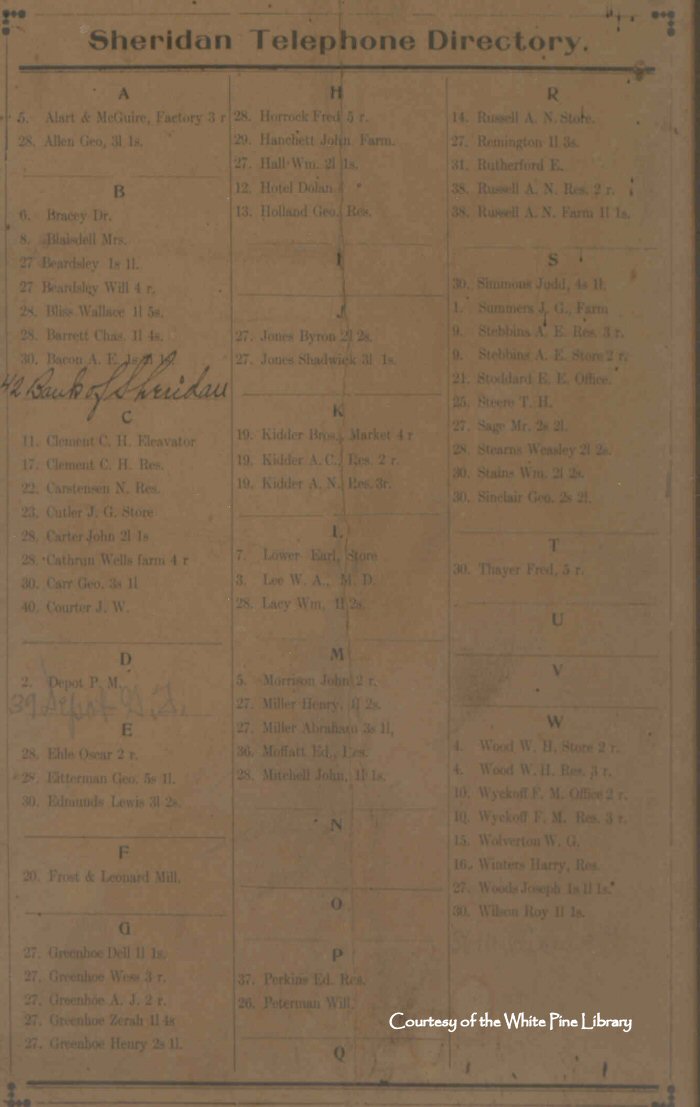 Sheridan Telephone Directory.
A
5. Alart & McGuire, Factory 3 r
28. Allen Geo, 3l 1s.
B
6. Bracey Dr.
8. Blaisdell Mrs.
27 Beardsley 1s 1l.
27 Beardsley Will 4 r.
28. Bliss Wallace 1l 5s.
28. Barrett Chas. 1l 4s.
30. Bacon A. E.
42 Bank of Sheridan
C
11. Clement C. H. Eleavator
17. Clement C. H. Res.
22. Carstensen N. Res.
23. Cutler J. G. Store
28. Carter John 2l 1s
28. Cathrun Wells farm 4 r
30. Carr Geo. 3s 1l
40. Courter J. W.
D
2. Depot P. M.
39 Depot G. T.
E
28. Ehle Oscar 2 r.
28. Eitterman Geo. 5s 1l.
30. Edmunds Lewis 3l 2s.
F
20. Frost & Leonard Mill.
G
27. Greenhoe Dell 1l 1s.
27. Greenhoe Wess 3 r.
27. Greenhoe A. J. 2 r.
27. Greenhoe Zerah 1l 4s
27. Greenhoe Henry 2s 1l.
H
28. Horrock Fred 5 r.
29. Hanchett John Farm.
27. Hall Wm. 2l 1s.
12. Hotel Dolan
13. Holland Geo. Res.
I
J
27. Jones Byron 2l 2s.
27. Jones Shadwick 3l 1s.
K
19. Kidder Bros., Market 4 r
19. Kidder A. C., Res. 2 r.
19. Kidder A. N. Res. 3r.
L
7. Lower Earl, Store
3. Lee W. A., M. D.
28. Lacy Wm. 1l 2s.
M
5. Morrison John 2 r.
27. Miller Henry, 1l 2s.
27. Miller Abraham 3s 1l,
36. Moffatt Ed., Res.
28. Mitchell John, 1l 1s.
N
O
P
37. Perkins Ed. Res.
26. Peterman Will.
Q
R
14. Russell A. N. Store.
27. Remington 1l 3s.
31. Rutherford E.
38. Russell A. N. Res. 2 r.
38. Russell A. N. Farm 1l 1s.
S
30. Simmons Judd, 4s 1l.
1. Summers J. G., Farm
9. Stebbins A. E. Res. 3 r.
9. Stebbins A. E. Store 2 r.
21. Stoddard E. E. Office.
25. Steere T. H.
27. Sage Mr. 2s 2l.
28. Stearns Weasley 2l 2s.
30. Stains Wm. 2l 2s.
30. Sinclair Geo. 2s 2l.
T
30. Thayer Fred, 5 r.
U
V
W
4. Wood W. H. Store 2 r.
4. Wood W. H. Res. 3 r.
10. Wyckoff F. M. Office 2 r.
10. Wyckoff F. M. Res. 3 r.
15. Wolverton W. G.
16. Winters Harry, Res.
27. Woods Joseph 1s 1l 1s.
30. Wilson Roy 1l 1s.
Courtesy of the White Pine Library